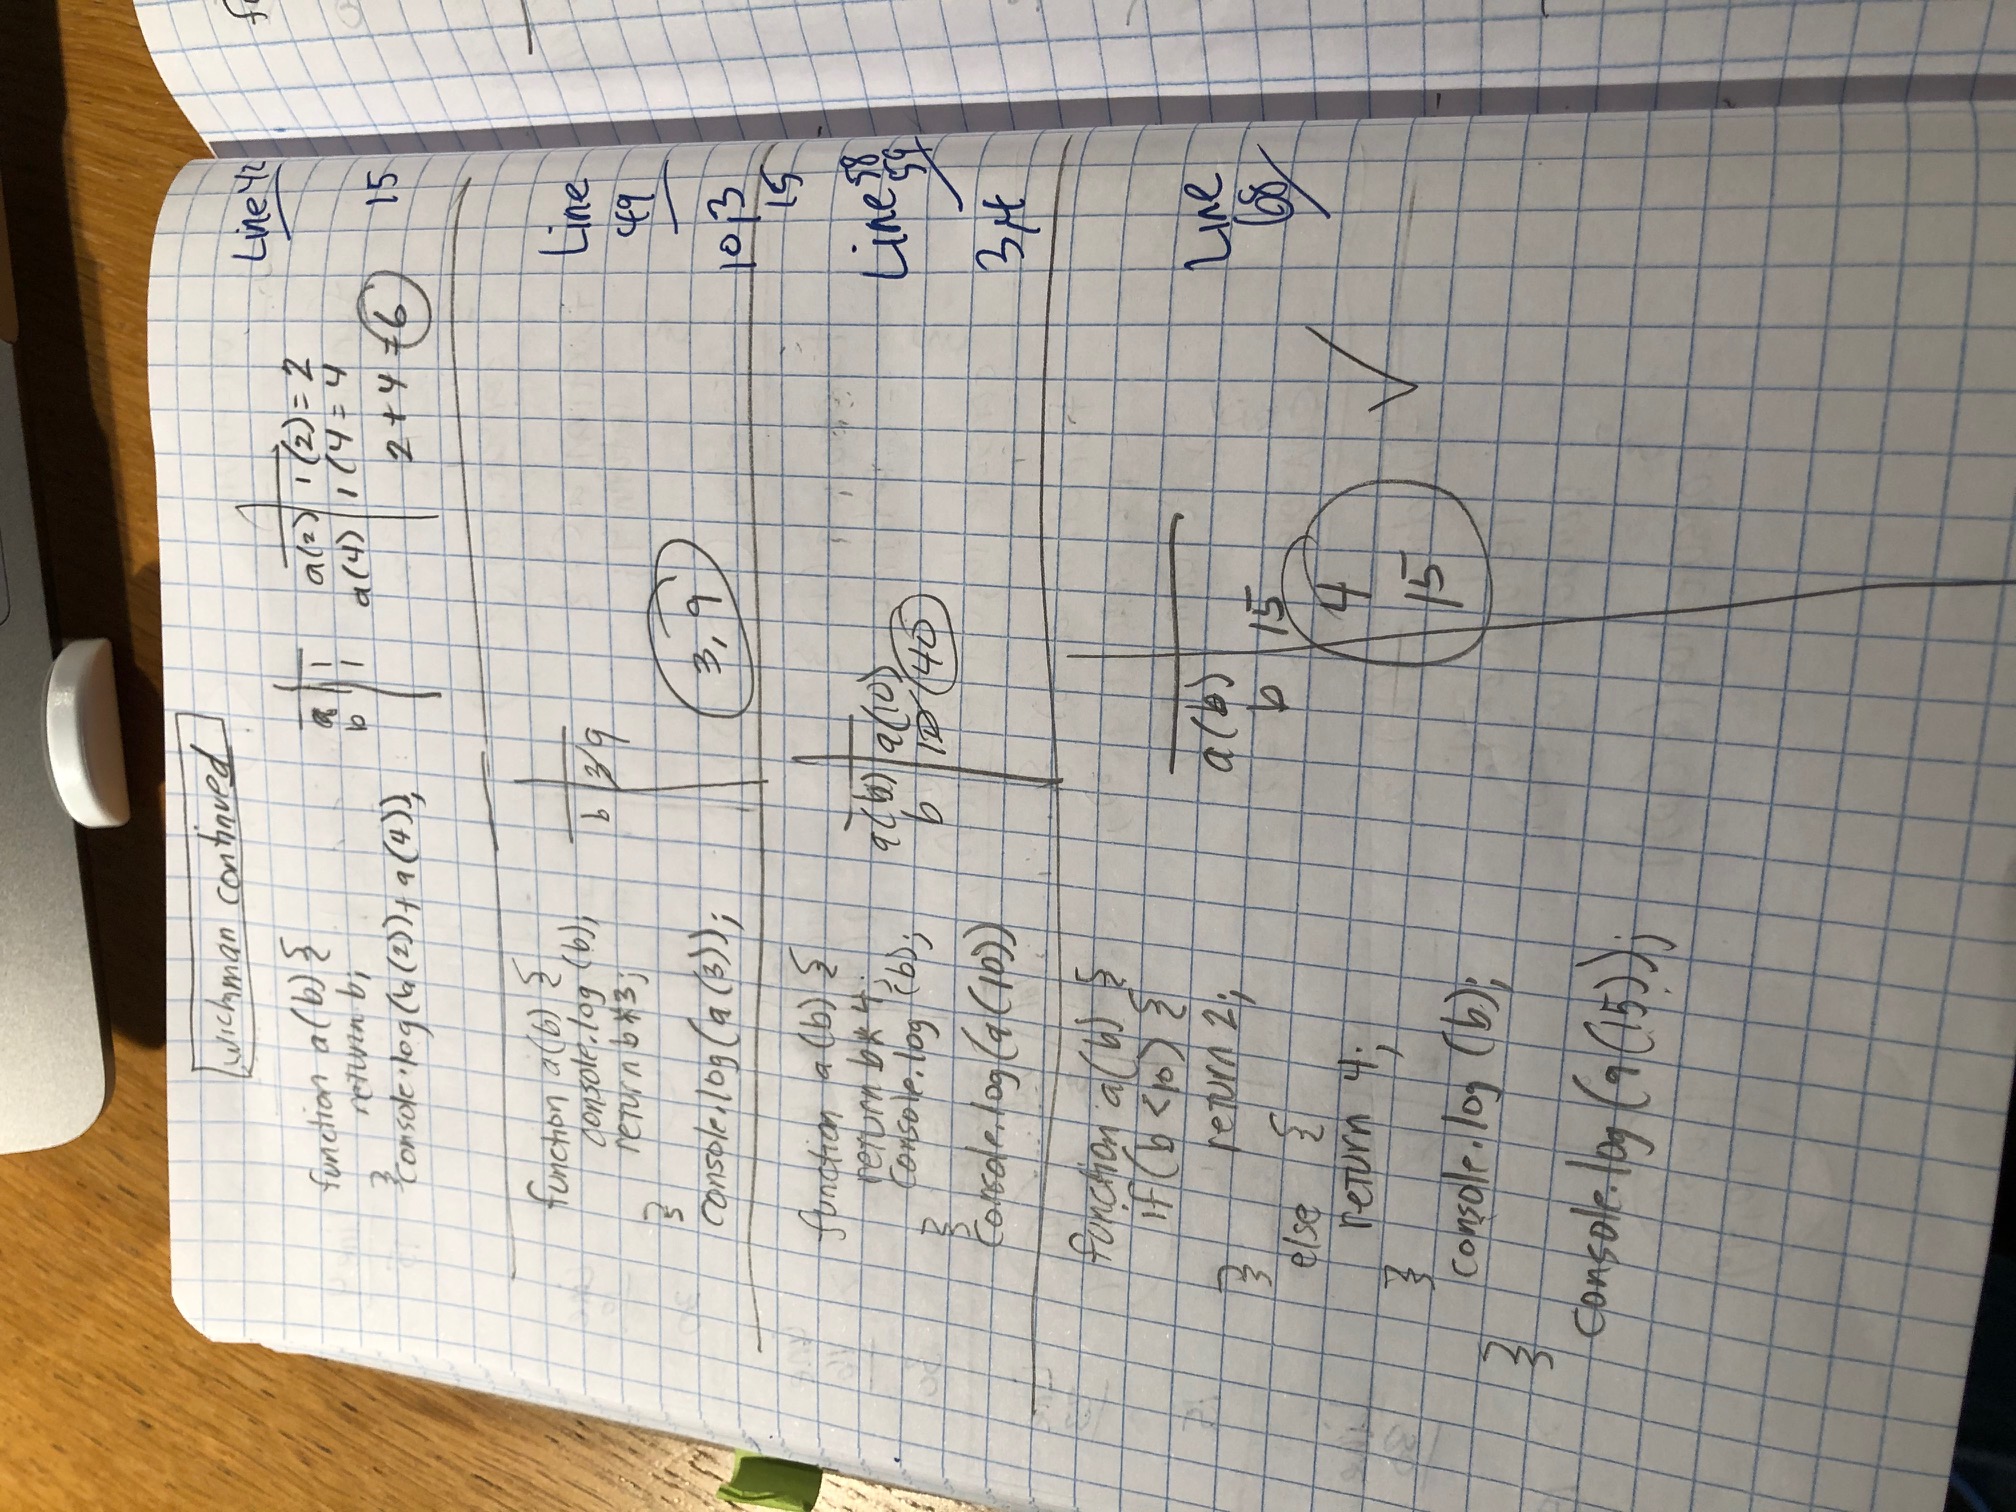 wichman continued
Line 42
function a(b) {
return b;
}
console.log(a(2))+ a(4));
a | 1
b | 1
a(2) | 1(2) = 2
a(4) | 1(4 = 4
2 + 4 = 6
15
function a(b) {
console.log (b);
return b*3;
}
console.log(a(3));
b | 3 9
3, 9
Line
49
10,3
15
function a(b) {
return b* 4;
console.log (b);
}
console.log(a(10))
a(b) | a(10)
b | 10 40
Line 58
59
3,4
function a(b) {
if (b <10) {
return 2;
}
else {
return 4;
}
console.log (b);
}
console.log(a(15));
a(b)
b | 15
4
15
Line
68